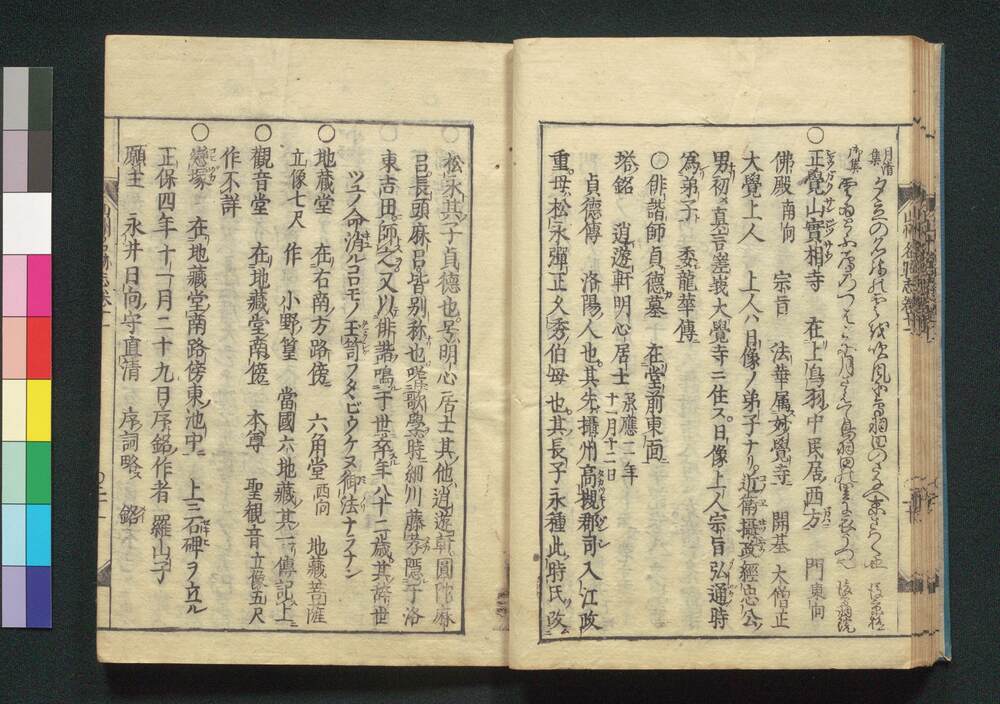 月清集
○正覺山實相寺 在上鳥羽中民居西方 門東向
佛殿南向 宗旨 法華属妙覺寺 開基 大僧正
大覺上人 上人ハ月像ノ弟子ナリ近衛攝政經忠公ノ
男初メ真言嵳峩大覺寺ニ住ス日像上人宗旨弘通時
為弟子 委龍華傳
○俳諧師貞德墓 在堂前東面
塔銘 逍遊軒明心居士 承應二年 十一月十二日
貞德傳 洛陽人也其先攝州高槻郡司入江政
重母松永彈正久秀伯母也其長子永種此時氏改
松永其子貞德也号明心居士其他逍遊軒圓陀麻
呂長頭麻呂皆別称也嗜歌學時細川藤孝隠于洛
東吉田師之又以俳諧鳴于世卒年八十二歳其辞世
ツユノ命消ルコロモノ玉笥フタヽビウケヌ御法ナラナン
○地蔵堂 在右南方路傍 六角堂西向 地蔵菩薩
立像七尺 作 小野篁 當國六地蔵其一傳記上ニ
○觀音堂 在地藏堂南傍 本尊 聖観音立像五尺
作不詳
○戀塚 在地藏堂南路傍東池中ニ 上ニ石碑ヲ立ル
正保四年十一月二十九日序銘作者 羅山子
願主 永井日向守直清 序詞略 銘